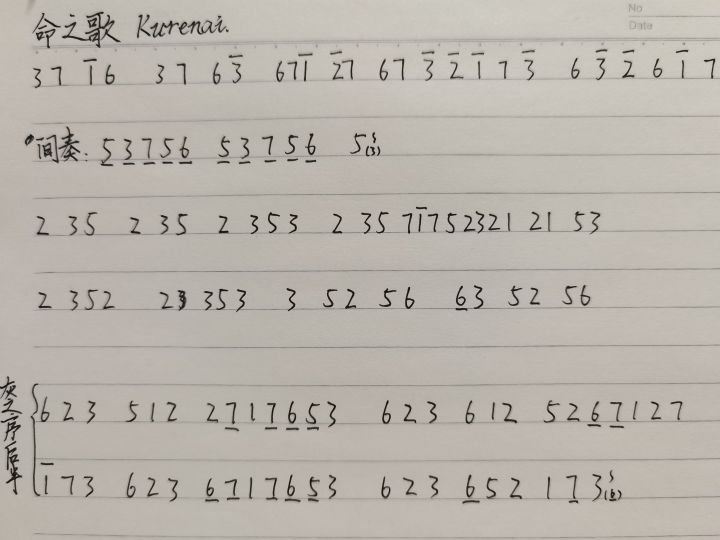 No
Date
命之歌 Kurenai.
37 1̅6 37 63̅ 671̅ 2̅7 67 3̅ 2̅ 1̅ 7 3̅ 6 3̅ 2̅ 6 1̅ 7
间奏: 5̲3̲7̲5̲6̲ 5̲3̲7̲5̲6̲ 5(3)
2 35 2 35 2 353 2 35 71̅752321 21 53
2 352 23 353 3 52 56 6̲3 52 56
灰之序后半
623 512 27̲17̲6̲5̲3 623 612 526̲7̲127
1̅73 623 6̲7̲17̲6̲5̲3 623 6̲52 17̲3(6̲)